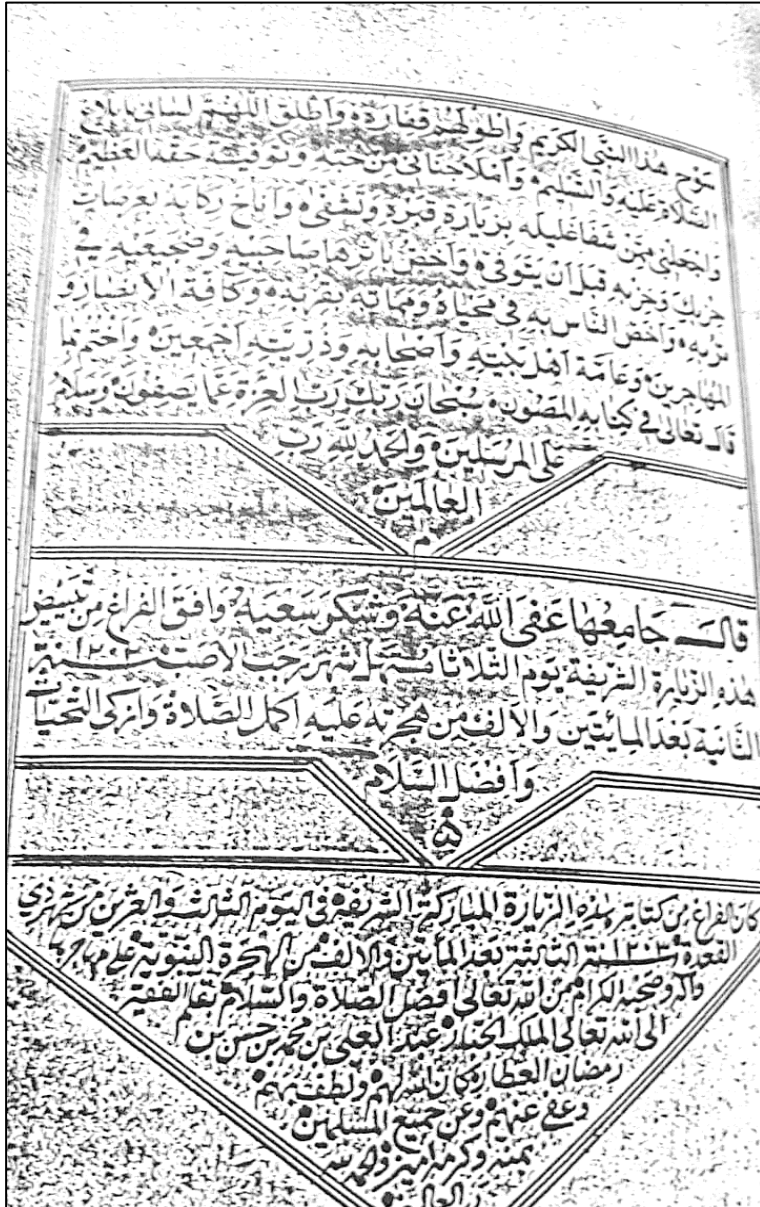 بوح هذا النبي الكريم واطولهم قفارة واطلق اللهم لساني بابلاغ
الصلاة عليه والتسليم واملأ جناني من حبه وتوفية حقه العظيم
واجعلني ممن شفا غليله بزيارة قبره وتشفى واناخ ركابه بعرصات
حزبك وحزبه قبل ان يتوفى واخص باثرها صاحبيه وضجيعيه في
تربه واخص الناس به في محياه ومماته بقربه وكافة الانصار و
المهاجرين وعامة اهل بيته واصحابه وذريته اجمعين واختم بما
قال تعالى في كتابه المصون سبحان ربك رب العزة عما يصفون وسلام
على المرسلين والحمد لله رب
العالمين
م
قال جامعها عفى الله عنه وشكر سعيه وافق الفراغ من تبييض
هذه الزيارة الشريفة يوم الثلاثا مستهل شهر رجب الاصب سنة ١٢٠٢
الثانية بعد المايتين والالف من هجرته عليه اكمل الصلاة وازكى التحيات
وافضل السلام
ه
كان الفراغ من كتابة هذه الزيارة المباركة الشريفة في اليوم الثالث والعشرين من شهر ذي
القعدة ١٢٠٣ سنة الثالثة بعد المأتين والالف من الهجرة النبوية على مهاجرها
وآله وصحبه الكرام من الله تعالى افضل الصلاة والسلام بقلم الفقير
الى الله تعالى الملك عبد العلي بن محمد بن حسن بن
رمضان العطار كان الله لهم ولطف بهم
وعفى عنهم وعن جميع المسلمين
بمنه وكرمه امين والحمد لله
رب العالمين